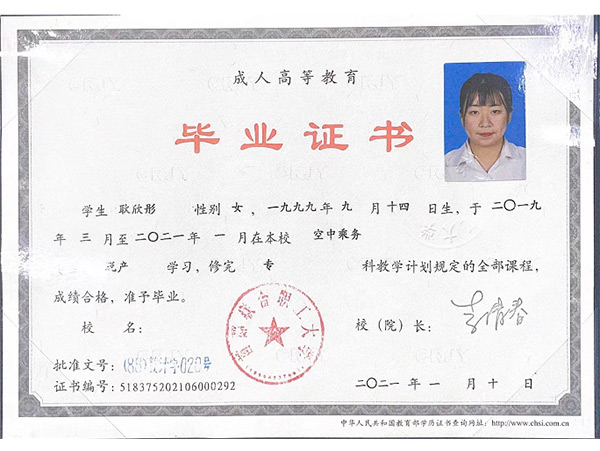 成人高等教育
毕业证书
学生 耿欣彤 性别 女，一九九九年 九 月 十四 日生，于 二〇一九
年 三 月至 二〇二一年 一 月在本校 空中乘务
脱产 学习，修完 专 科教学计划规定的全部课程，
成绩合格，准予毕业。
校 名：
联合职工大学
校（院）长：
批准文号：
证书编号：518375202106000292
二〇二一 年 一 月 十 日
中华人民共和国教育部学历证书查询网址：http://www.chsi.com.cn